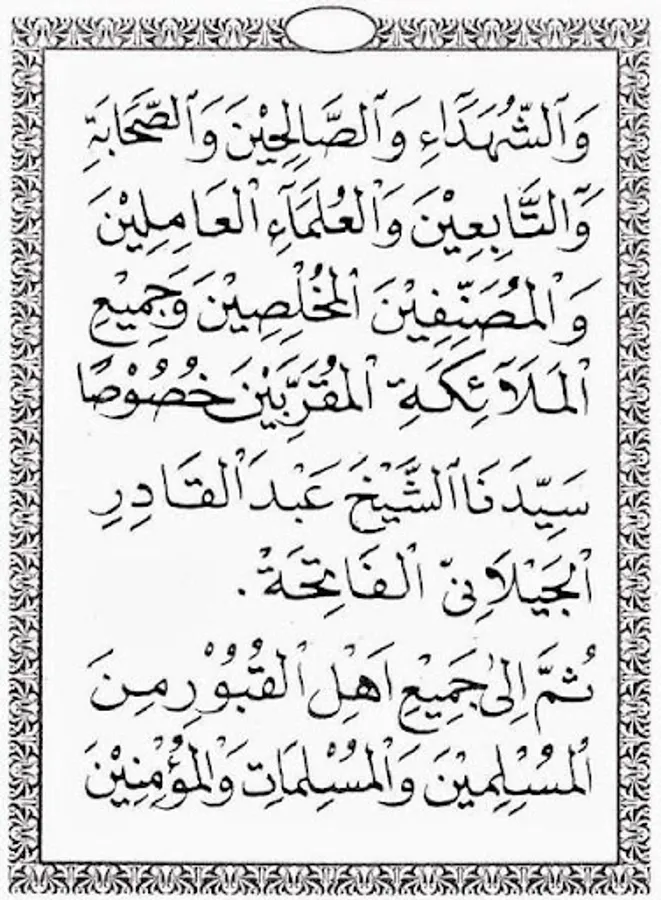 وَالشُّهَدَآءِ وَالصَّالِحِيْنَ وَالصَّحَابَةِ
وَالتَّابِعِيْنَ وَالْعُلَمَآءِ الْعَامِلِيْنَ
وَالْمُصَنِّفِيْنَ الْمُخْلِصِيْنَ وَجَمِيْعِ
الْمَلَآئِكَةِ الْمُقَرَّبِيْنَ خُصُوْصًا
سَيِّدَنَا الشَّيْخَ عَبْدَ الْقَادِرِ
الْجَيْلَانِيّ الْفَاتِحَةْ .
ثُمَّ اِلٰى جَمِيْعِ اَهْلِ الْقُبُوْرِ مِنَ
الْمُسْلِمِيْنَ وَالْمُسْلِمَاتِ وَالْمُؤْمِنِيْنَ